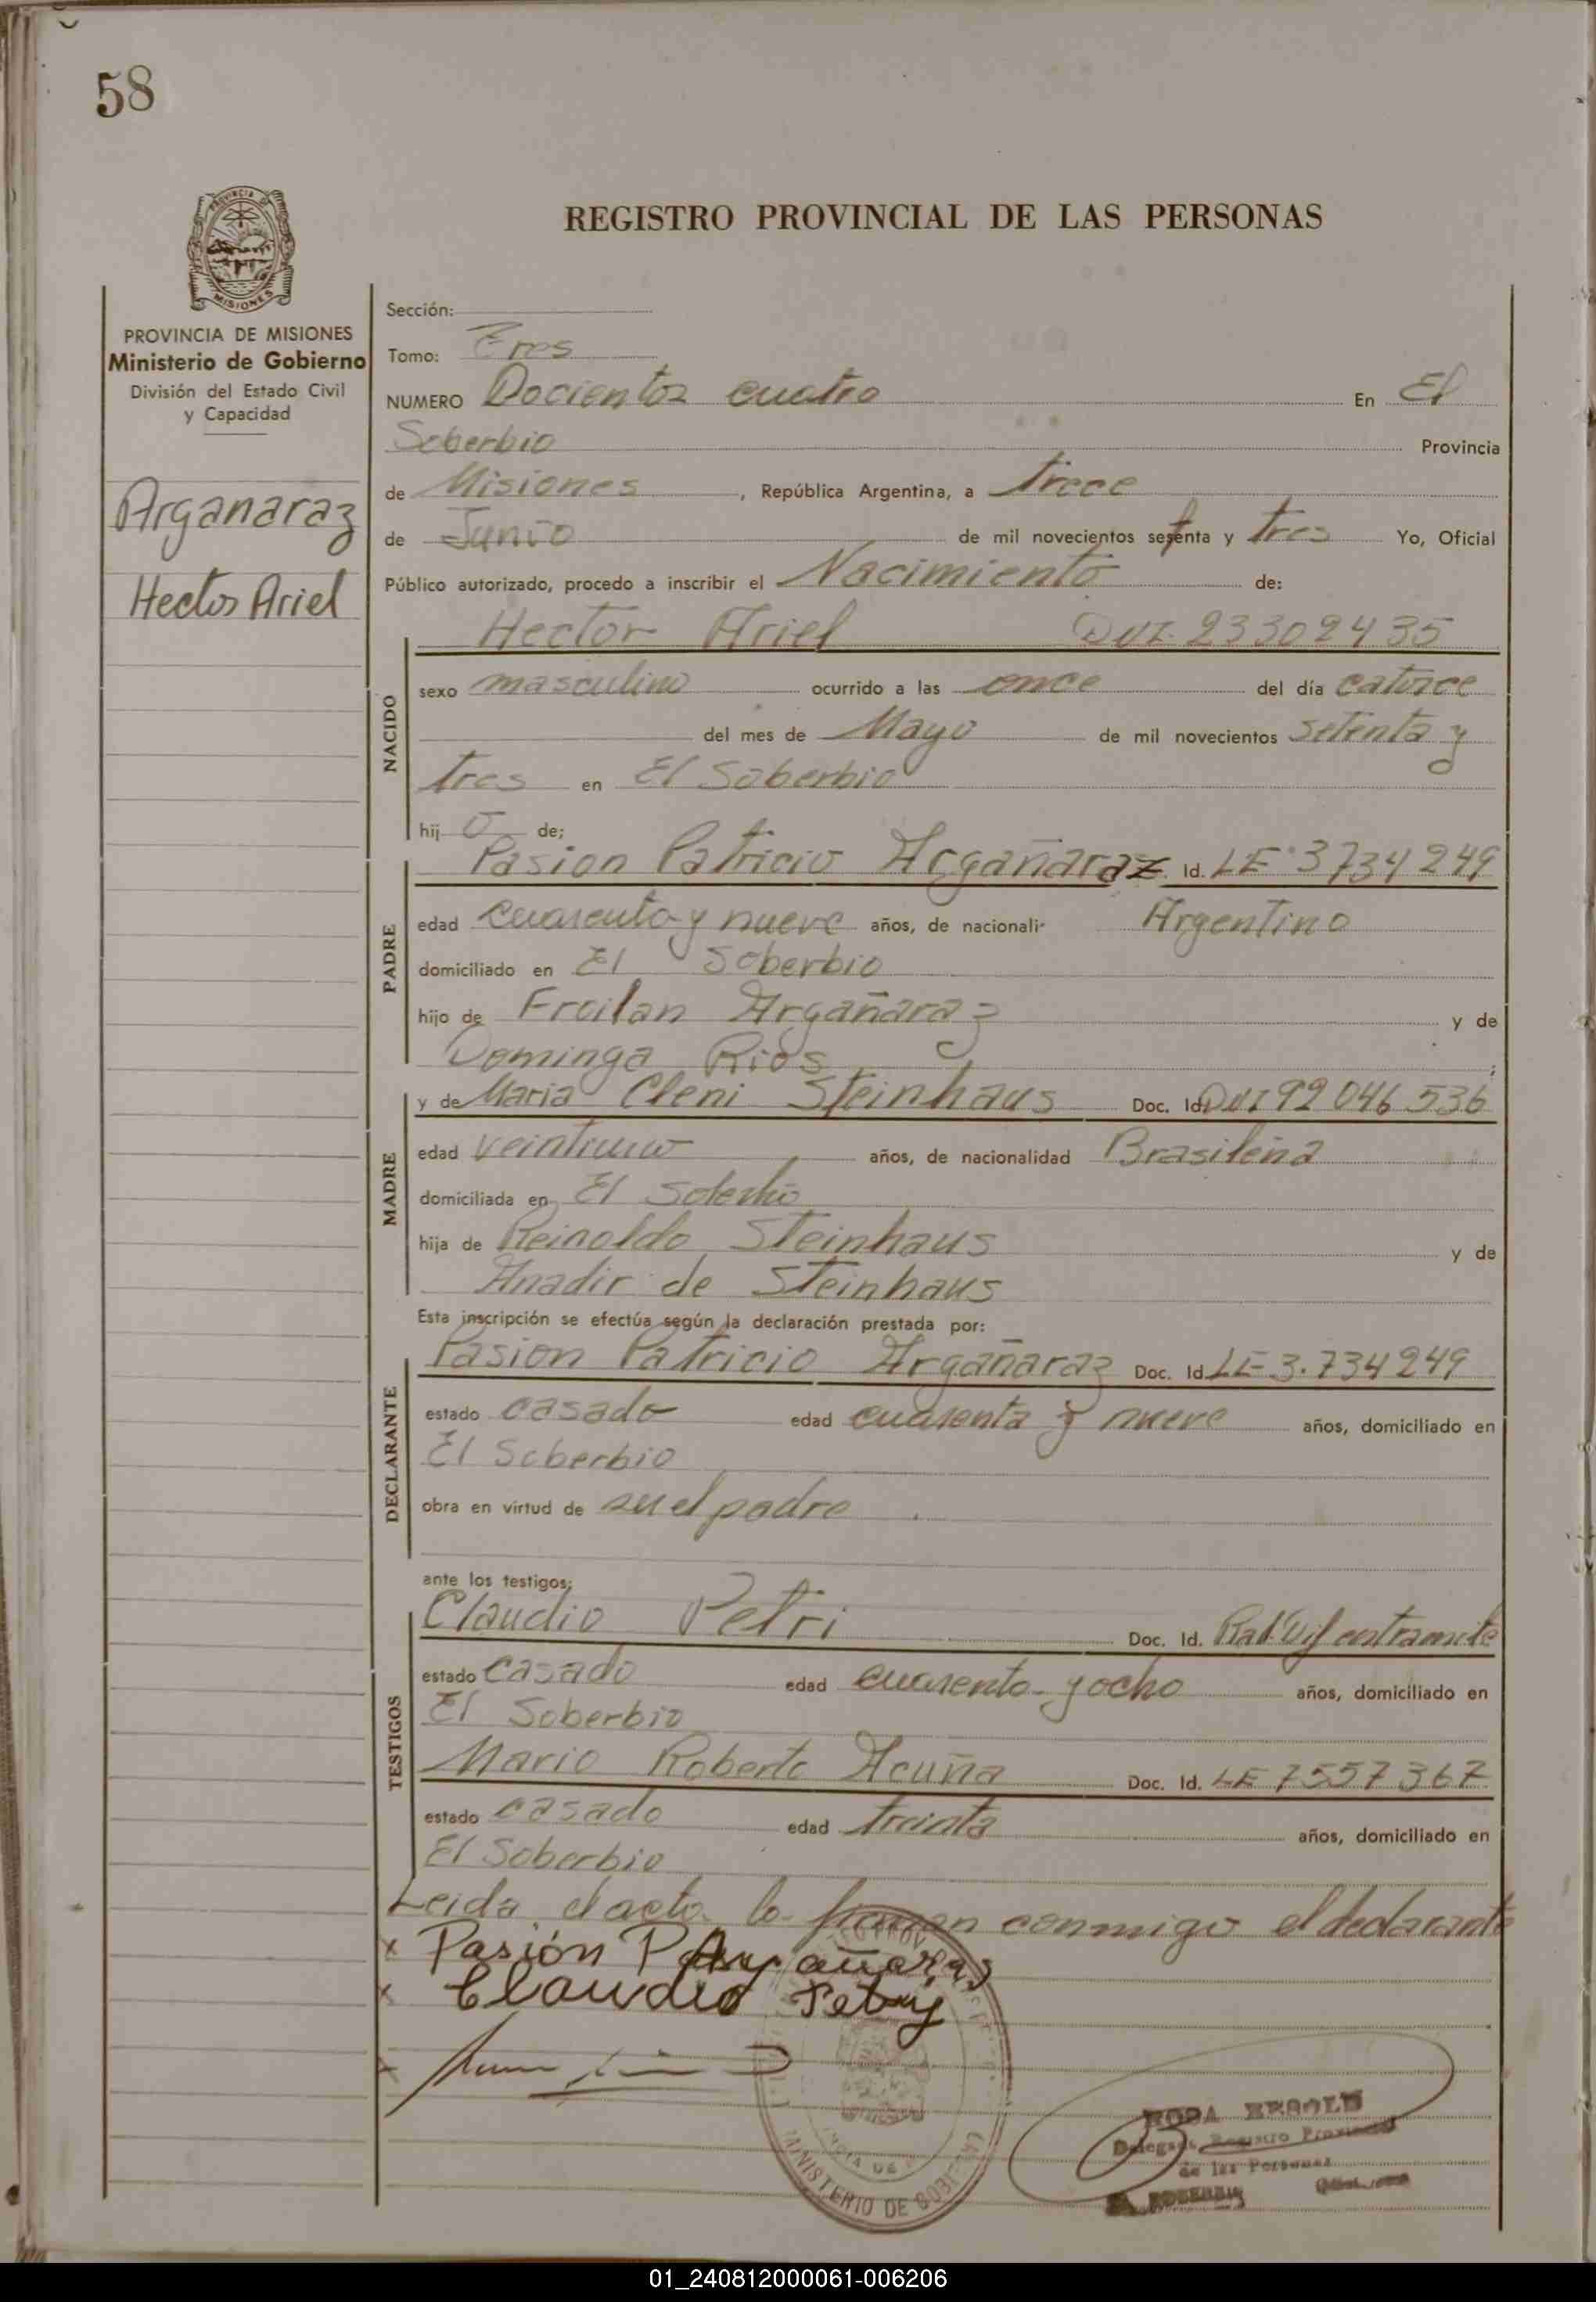 58
PROVINCIA DE
MISIONES
REGISTRO PROVINCIAL DE LAS PERSONAS
PROVINCIA DE MISIONES
Ministerio de Gobierno
División del Estado Civil
y Capacidad
Arganaraz
Hector Ariel
Sección:
Tomo: Tres
NUMERO Docientos cuatro En El
Soberbio Provincia
de Misiones, República Argentina, a trece
de Junio de mil novecientos setenta y tres Yo, Oficial
Público autorizado, procedo a inscribir el Nacimiento de:
Hector Ariel DNI. 23302435
NACIDO
sexo masculino ocurrido a las once del día catorce
del mes de Mayo de mil novecientos setenta y
tres en El Soberbio
hijo de;
Pasion Patricio Argañaraz. Id. LE 3734249
PADRE
edad cuarenta y nueve años, de nacionali- Argentino
domiciliado en El Soberbio
hijo de Froilan Argañaraz y de
Dominga Rios ;
y de Maria Cleni Steinhaus Doc. Id. DNI 92 046 536
MADRE
edad veintiuno años, de nacionalidad Brasileña
domiciliada en El Soberbio
hija de Reinoldo Steinhaus y de
Anadir de Steinhaus
Esta inscripción se efectúa según la declaración prestada por:
Pasion Patricio Argañaraz Doc. Id. LE 3.734249
DECLARANTE
estado casado edad cuarenta y nueve años, domiciliado en
El Soberbio
obra en virtud de ser el padre.
ante los testigos;
Claudio Petri Doc. Id. en tramite
TESTIGOS
estado casado edad cuarenta y ocho años, domiciliado en
El Soberbio
Mario Roberto Acuña Doc. Id. LE 7557367
estado casado edad treinta años, domiciliado en
El Soberbio
Leida el acta la firman conmigo el declarante
x Pasión P Argañaras
x Claudio Petry
x
MINISTERIO DE GOBIERNO
ROSA
Delegada Registro Provincial
de las Personas
EL SOBERBIO
01_240812000061-006206